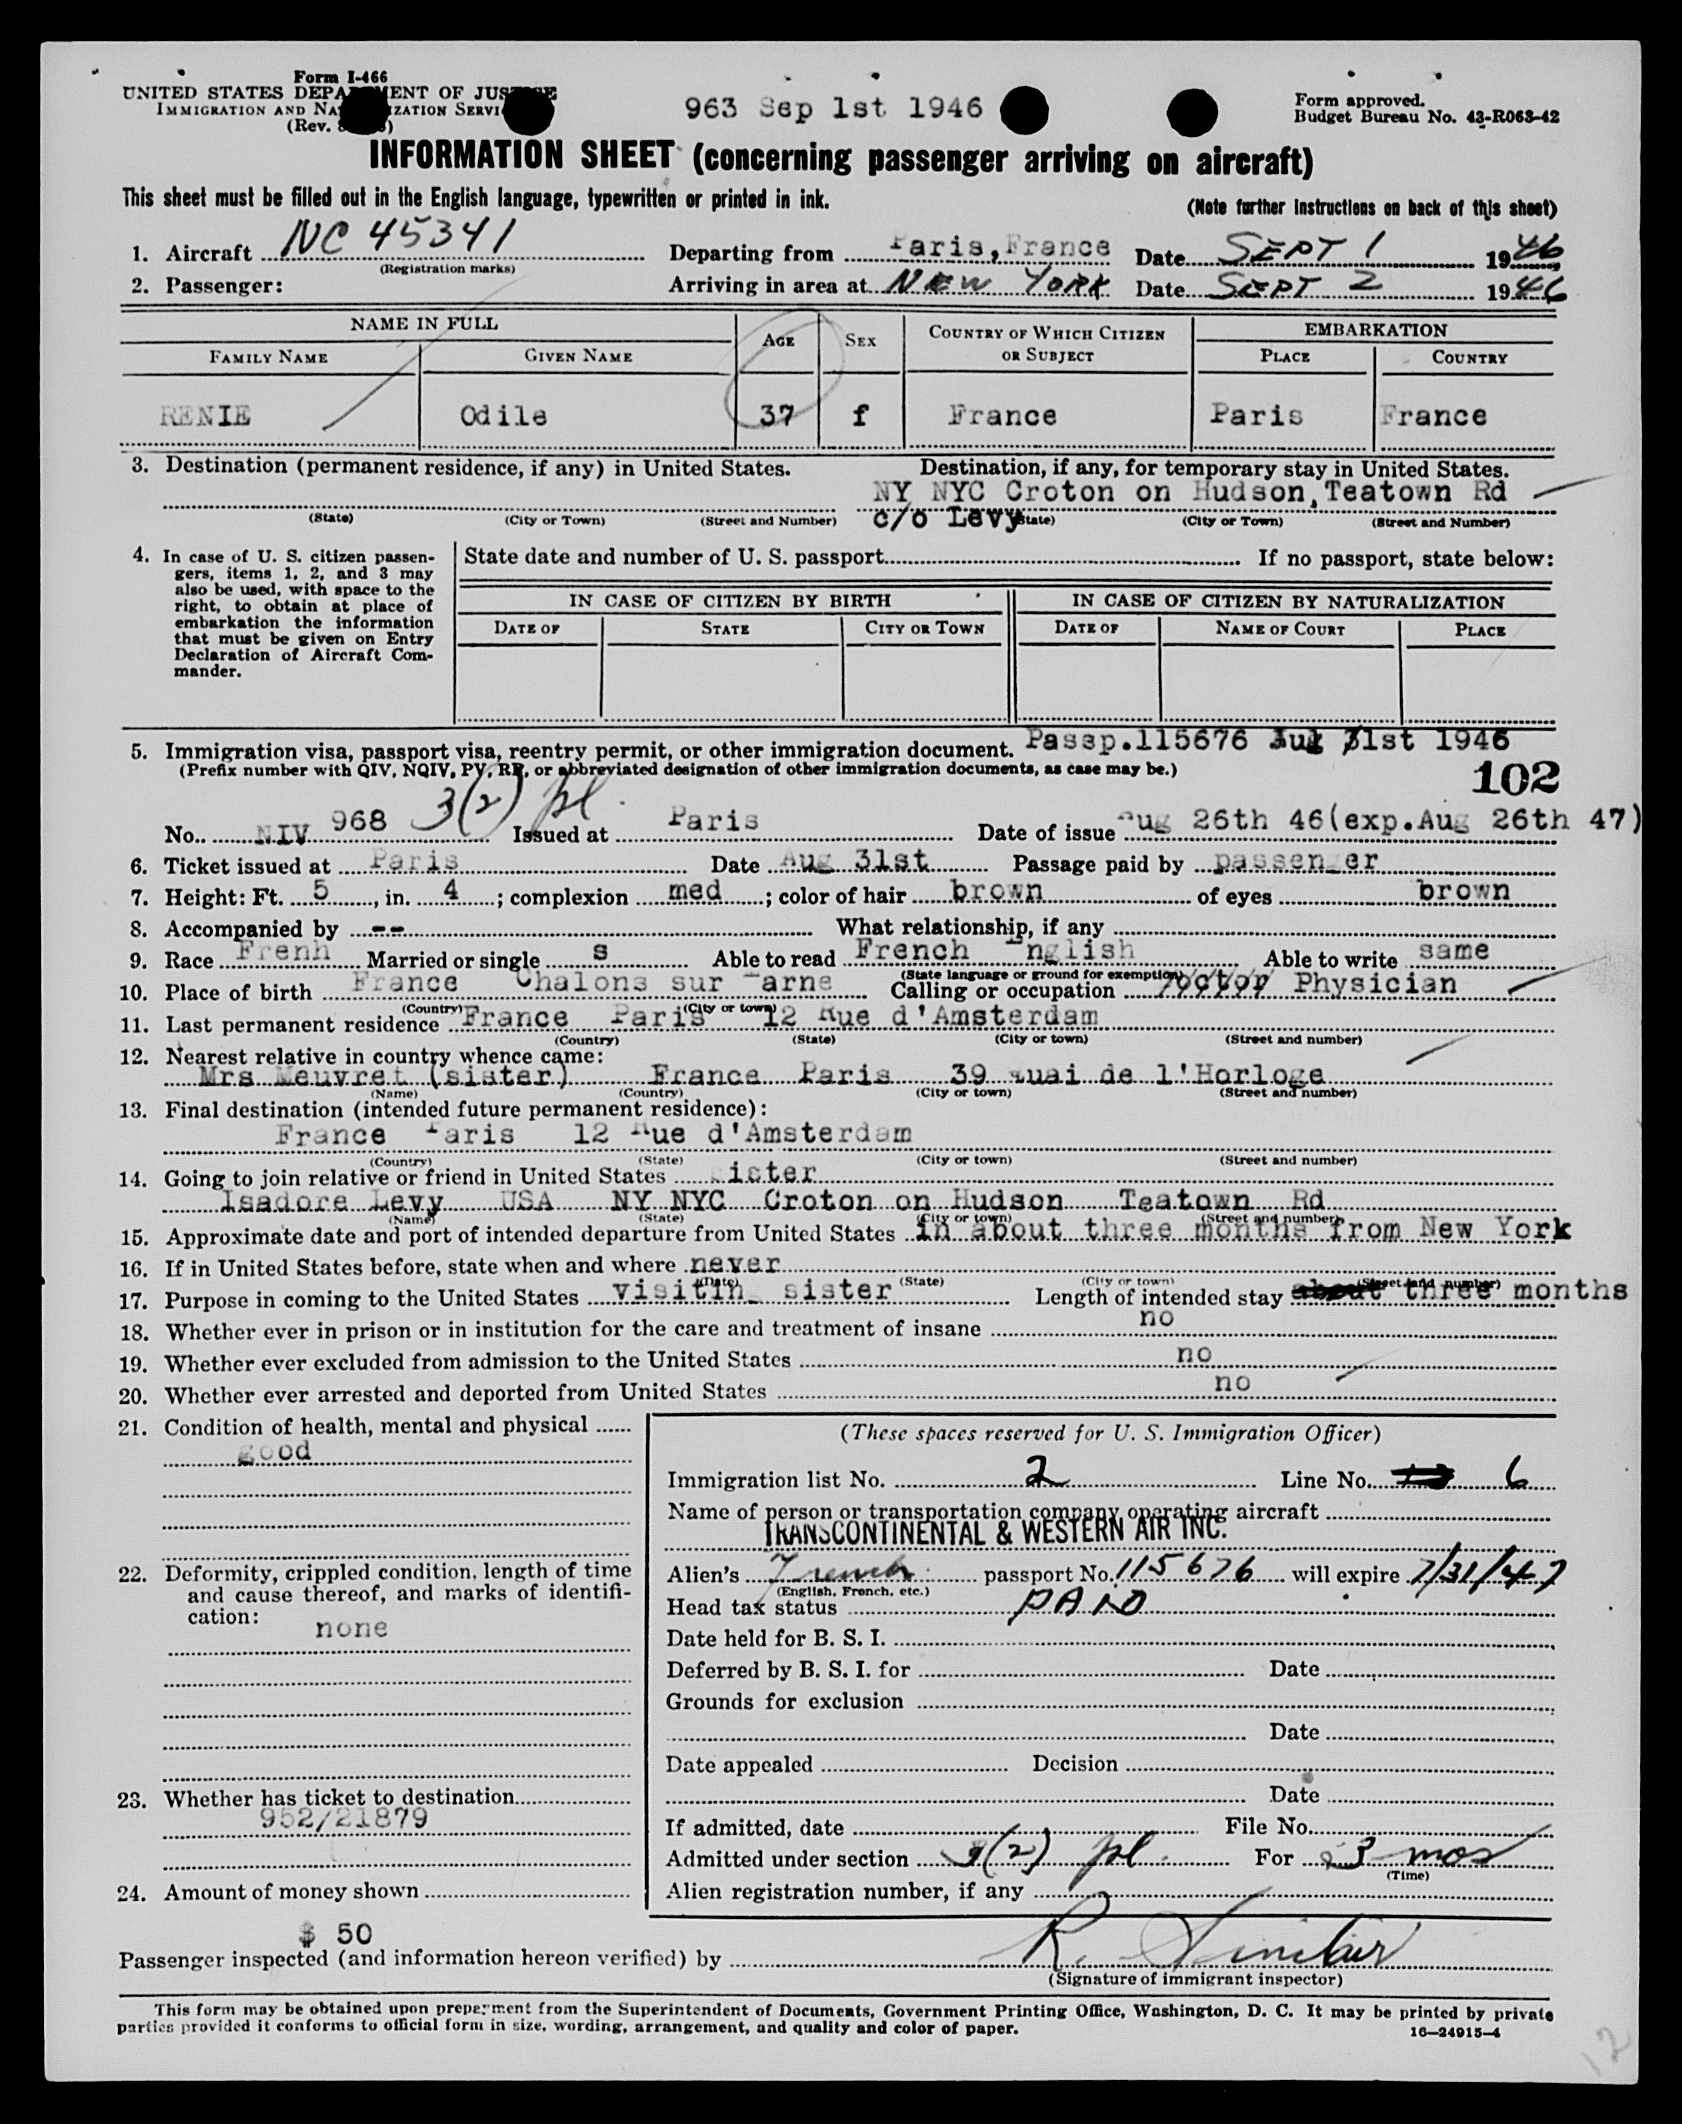 Form I-466
UNITED STATES DEPARTMENT OF JUSTICE
IMMIGRATION AND NATURALIZATION SERVICE
(Rev.
963 Sep 1st 1946
Form approved.
Budget Bureau No. 43-R063-42
INFORMATION SHEET (concerning passenger arriving on aircraft)
This sheet must be filled out in the English language, typewritten or printed in ink.
(Note further instructions on back of this sheet)
1. Aircraft NC 45341 Departing from Paris, France Date SEPT 1 1946
(Registration marks)
2. Passenger: Arriving in area at NEW YORK Date SEPT 2 1946
NAME IN FULL AGE SEX COUNTRY OF WHICH CITIZEN OR SUBJECT EMBARKATION
FAMILY NAME GIVEN NAME PLACE COUNTRY
RENIE Odile 37 f France Paris France
3. Destination (permanent residence, if any) in United States. Destination, if any, for temporary stay in United States.
NY NYC Croton on Hudson, Teatown Rd
c/o Levy
(State) (City or Town) (Street and Number) (State) (City or Town) (Street and Number)
4. In case of U. S. citizen passengers, items 1, 2, and 3 may also be used, with space to the right, to obtain at place of embarkation the information that must be given on Entry Declaration of Aircraft Commander.
State date and number of U. S. passport If no passport, state below:
IN CASE OF CITIZEN BY BIRTH IN CASE OF CITIZEN BY NATURALIZATION
DATE OF STATE CITY OR TOWN DATE OF NAME OF COURT PLACE
5. Immigration visa, passport visa, reentry permit, or other immigration document. Passp.115676 Jul 31st 1946
(Prefix number with QIV, NQIV, PV, RP, or abbreviated designation of other immigration documents, as case may be.)
102
3(2) pl.
No. NIV 968 Issued at Paris Date of issue Aug 26th 46(exp.Aug 26th 47)
6. Ticket issued at Paris Date Aug 31st Passage paid by passenger
7. Height: Ft. 5, in. 4; complexion med; color of hair brown of eyes brown
8. Accompanied by -- What relationship, if any
9. Race Frenh Married or single s Able to read French English Able to write same
(State language or ground for exemption)
10. Place of birth France Chalons sur Marne Calling or occupation Doctor Physician
(Country) (City or town)
11. Last permanent residence France Paris 12 Rue d'Amsterdam
(Country) (State) (City or town) (Street and number)
12. Nearest relative in country whence came:
Mrs Meuvret (sister) France Paris 39 Quai de l'Horloge
(Name) (Country) (City or town) (Street and number)
13. Final destination (intended future permanent residence):
France Paris 12 Rue d'Amsterdam
(Country) (State) (City or town) (Street and number)
14. Going to join relative or friend in United States sister
Isadore Levy USA NY NYC Croton on Hudson Teatown Rd
(Name) (State) (City or town) (Street and number)
15. Approximate date and port of intended departure from United States in about three months from New York
16. If in United States before, state when and where never
(Date) (State) (City or town) (Street and number)
17. Purpose in coming to the United States visiting sister Length of intended stay about three months
18. Whether ever in prison or in institution for the care and treatment of insane no
19. Whether ever excluded from admission to the United States no
20. Whether ever arrested and deported from United States no
21. Condition of health, mental and physical
good
22. Deformity, crippled condition, length of time and cause thereof, and marks of identification:
none
23. Whether has ticket to destination
952/21879
24. Amount of money shown
$ 50
(These spaces reserved for U. S. Immigration Officer)
Immigration list No. 2 Line No. 6
Name of person or transportation company operating aircraft
TRANSCONTINENTAL & WESTERN AIR INC.
Alien's French passport No. 115676 will expire 7/31/47
(English, French, etc.)
Head tax status PAID
Date held for B. S. I.
Deferred by B. S. I. for Date
Grounds for exclusion
Date
Date appealed Decision
Date
If admitted, date File No.
Admitted under section 3(2) pl. For 3 mos
(Time)
Alien registration number, if any
Passenger inspected (and information hereon verified) by R. Sinclair
(Signature of immigrant inspector)
This form may be obtained upon prepayment from the Superintendent of Documents, Government Printing Office, Washington, D. C. It may be printed by private
parties provided it conforms to official form in size, wording, arrangement, and quality and color of paper.
16—24915-4
12